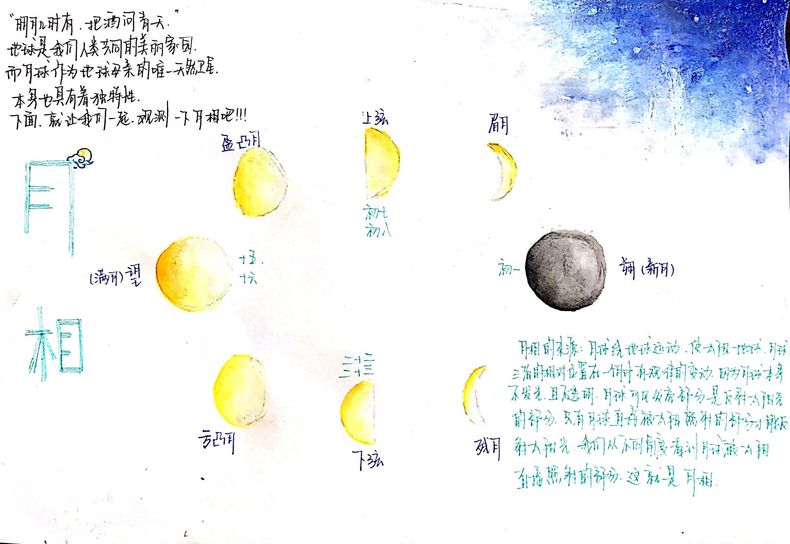 “明月几时有，把酒问青天。”
地球是我们人类共同的美丽家园.
而月球作为地球母亲的唯一天然卫星.
本身也具有着独特性.
下面，就让我们一起，观测一下月相吧!!!
月
相
盈凸月
上弦
初七
初八
眉月
(满月) 望
十五.
十六
初一
朔 (新月)
亏凸月
二十二
二十三
下弦
残月
月相的来源: 月球绕地球运动，使太阳、地球、月球
三者的相对位置在一个月中有规律的变动，因为月球本身
不发光，且不透明，月球可见发亮部分是反射太阳光
的部分，只有月球直接被太阳照射的部分才能反
射太阳光，我们从不同角度看到月球被太阳
直接照射的部分，这就是月相.